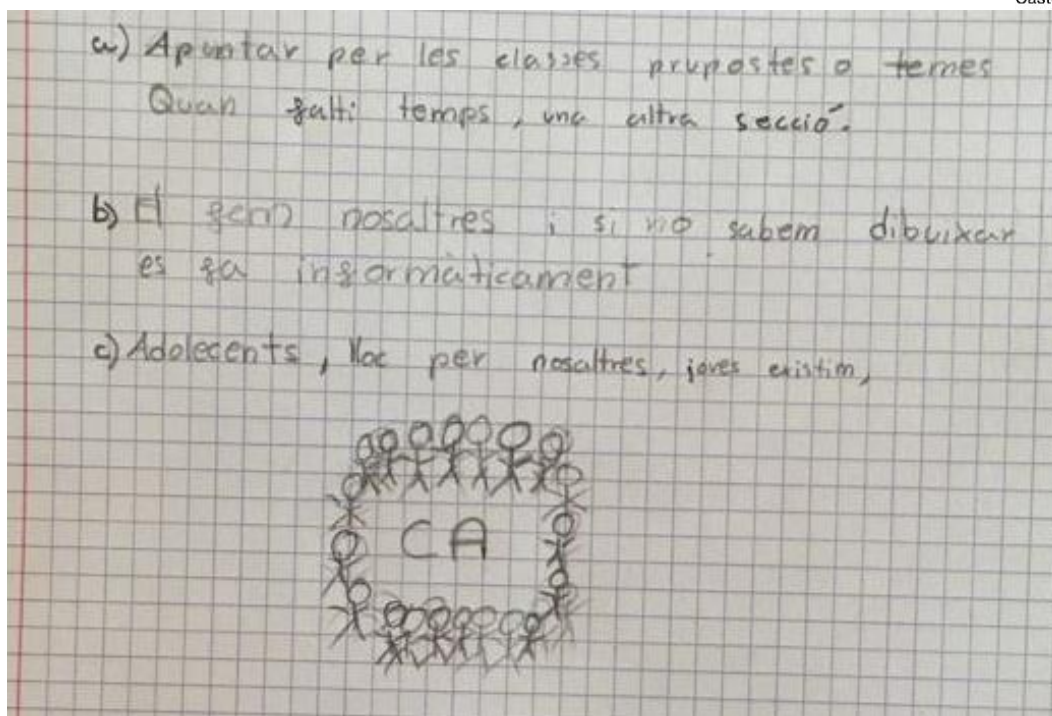 a) Apuntar per les classes prupostes o temes
Quan falti temps, una altra secció.
b) El fem nosaltres i si no sabem dibuixar
es fa informàticament
c) Adolecents, lloc per nosaltres, joves existim,
CA